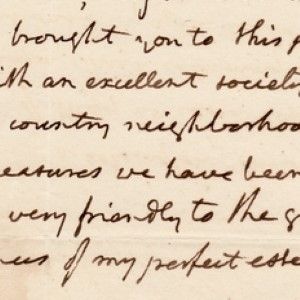 brought you to this
with an excellent society
country neighborhoo
easures we have been
very friendly to the g
of my perfect este